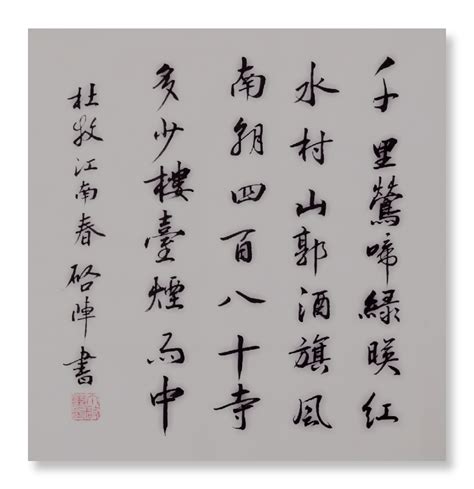 千里鶯啼綠暎紅
水村山郭酒旗風
南朝四百八十寺
多少樓臺煙雨中
杜牧江南春 陣書